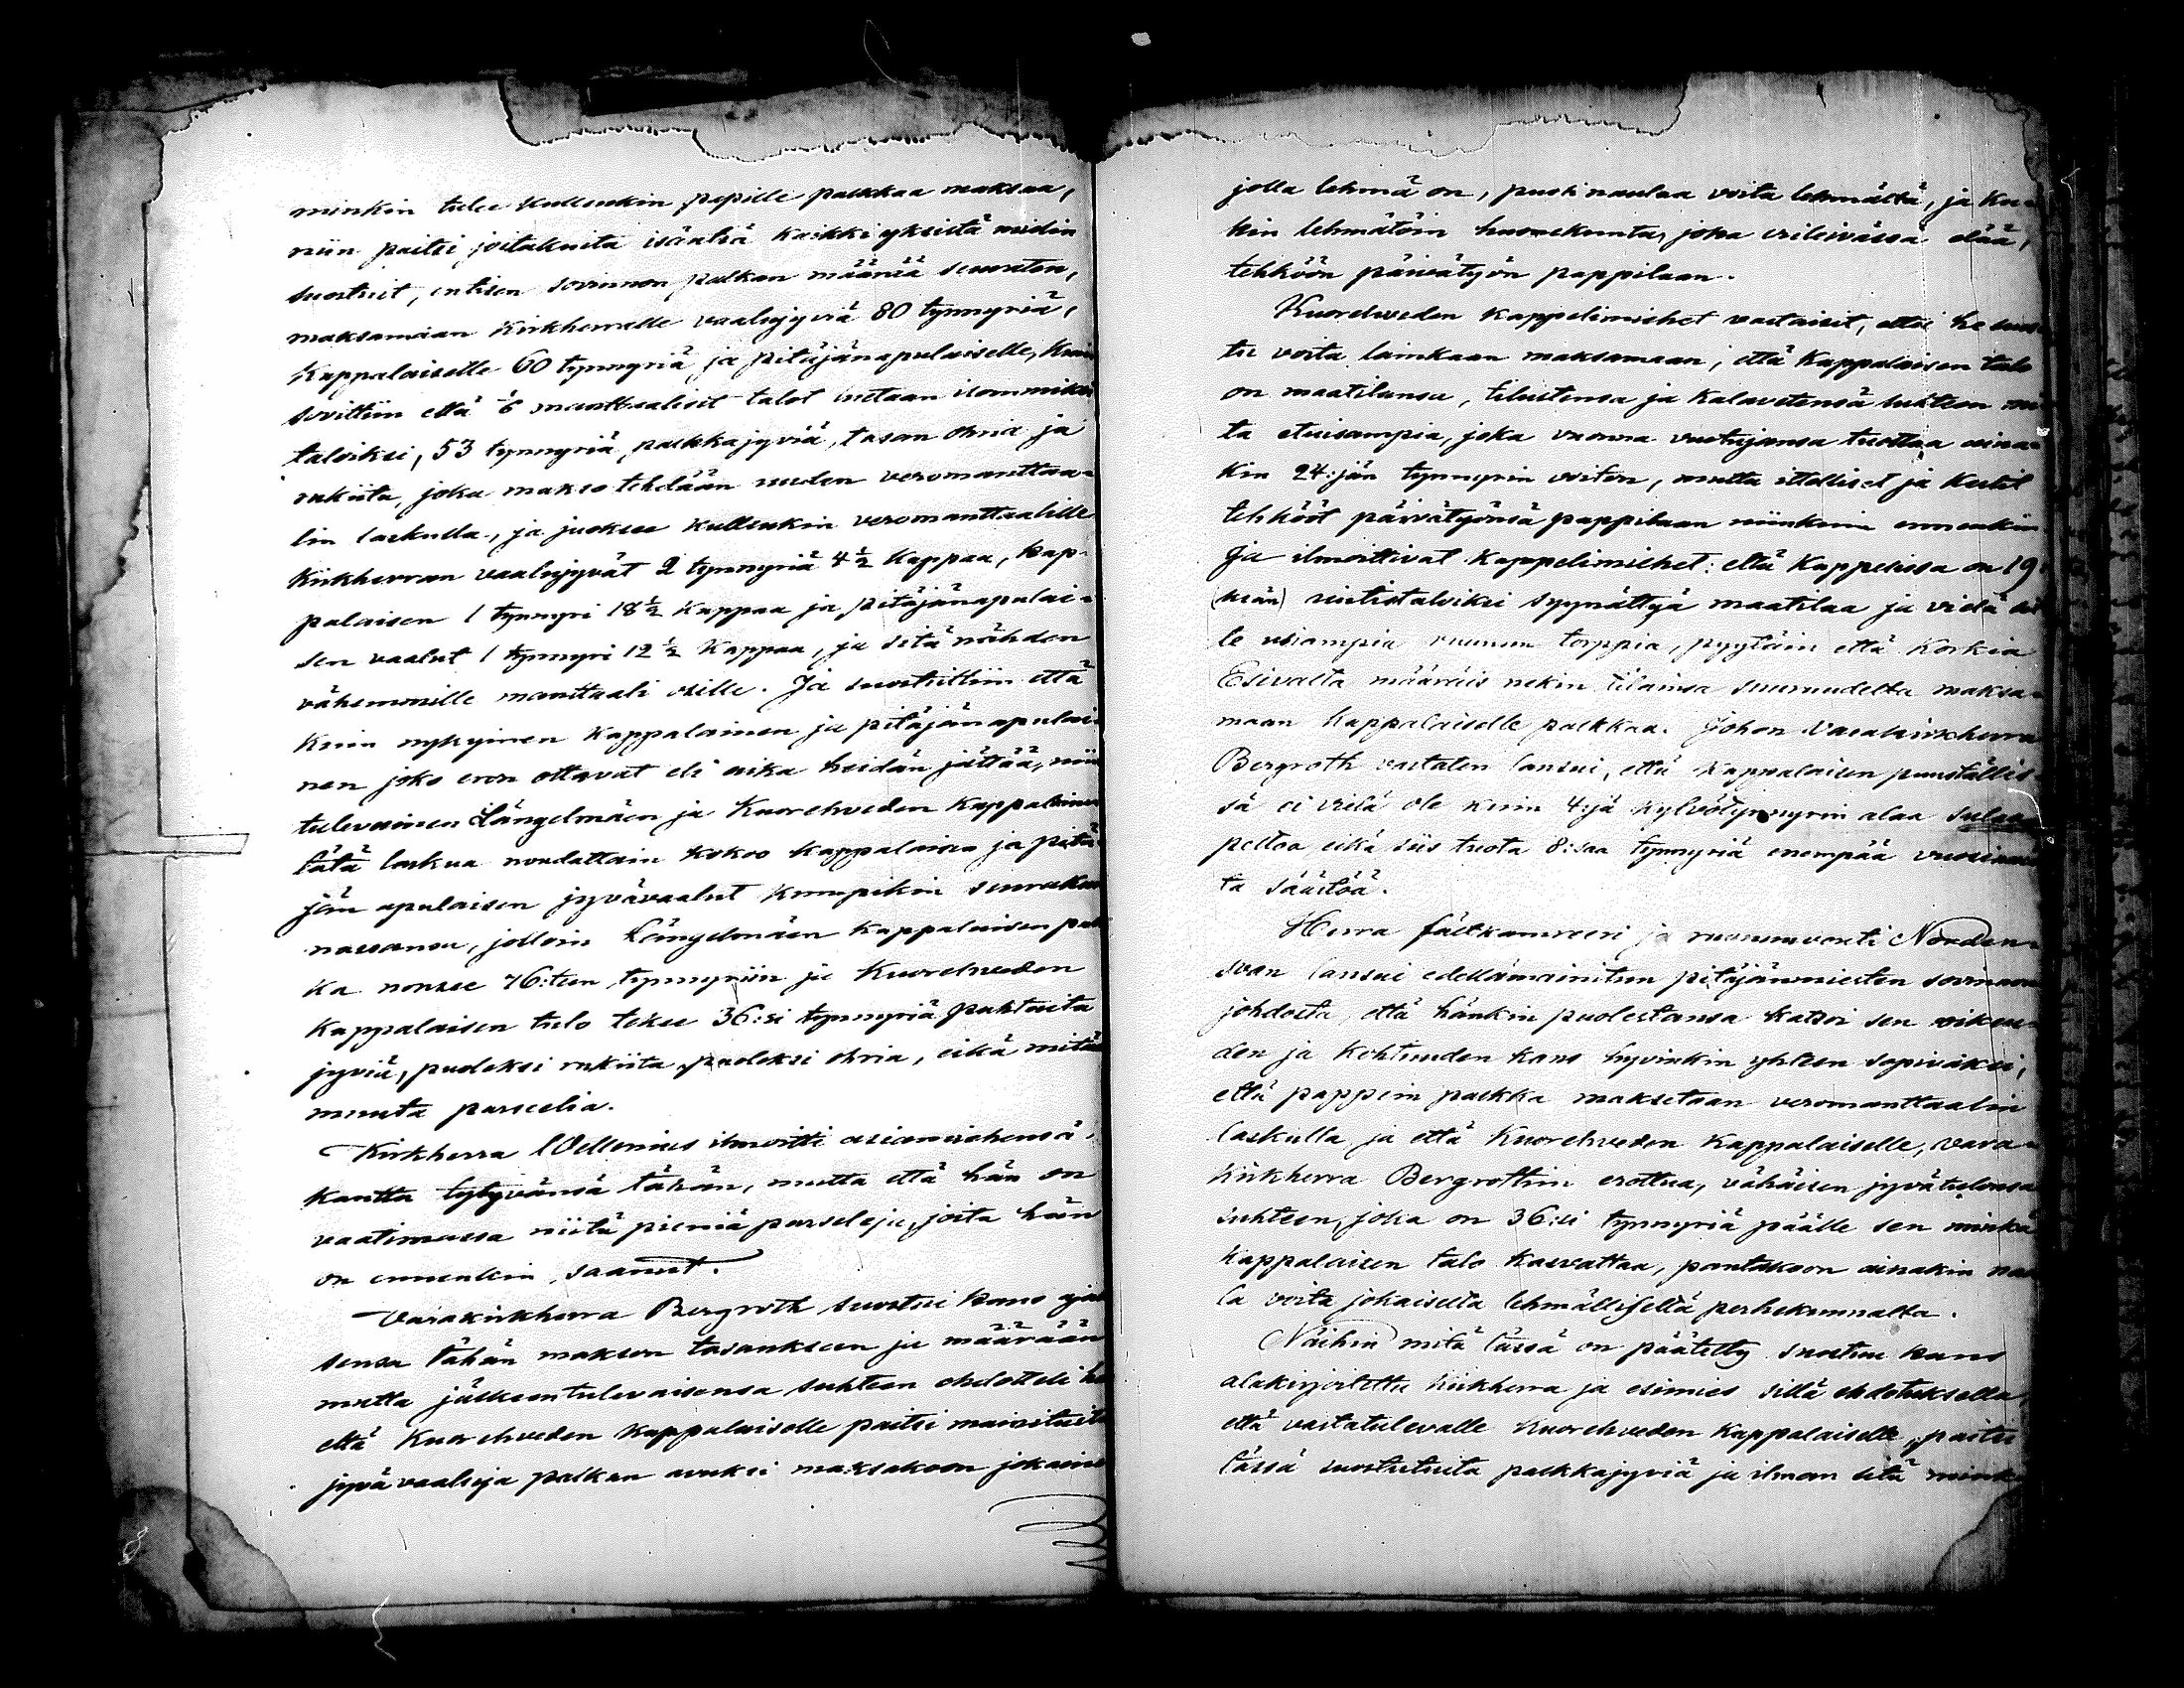 minkin tulee kullenkin papille palkkaa maksaa,
niin paitsi joitakuita isäntiä kaikki yksistä neidin
suostuit, entisen sovinnon palkan määrää seuraten,
maksamaan Kirkherralle vaalujyviä 80 tynnyriä,
Kappalaiselle 60 tynnyriä ja pitäjänapulaiselle, kuin
sovittiin että 1/6 manttaaliset talot luetaan isommiksi
taloiksi, 53 tynnyriä palkkajyviä, tasan ohria ja
rukiita, joka makso tehdään uuden veromanttaa-
lin laskulla, ja juoksee kullenkin veromanttaalille
Kirkherran vaalujyvät 2 tynnyriä 4 1/2 kappaa, kap-
palaisen 1 tynnyri 18 1/2 kappaa ja pitäjänapulai-
sen vaalut 1 tynnyri 12 1/2 kappaa, ja sitä nähden
vähemmille manttaali osille. Ja suostuttiin että
kuin nykyinen kappalainen ja pitäjänapulai-
nen joko eron ottavat eli aika heidän jättää, niin
tulevainen Längelmäen ja Kuorehveden kappalainen
tätä laskua noudattain kokoo kappalaisen ja pitä-
jän apulaisen jyvävaalut kumpikin seurakun
nassansa, jolloin Längelmäen kappalaisen pal
ka nousee 76:teen tynnyriin ja Kuorehveden
kappalaisen tulo tekee 36:si tynnyriä puhtaita
jyviä, puoleksi rukiita puoleksi ohria, eikä mitään
muuta parseelia.
Kirkherra Wellenius ilmoitti asiamiehensä
kautta tytyvänsä tähän, mutta että hän on
vaatimassa niitä pieniä parseleja, joita hän
on ennenkin saanut.
Varakirkherra Bergroth suostui kans ajal
sensa tähän makson tasaukseen ja määrään
mutta jälkeentulevaisensa suhteen ehdotteli hän
että Kuorehveden kappalaiselle paitsi mainituita
jyvä vaaluja palkan avuksi maksakoon jokainen
jolla lehmä on, puoli naulaa voita lehmältä, ja ku-
kin lehmätöin huonekunta, joka erileivässä elää,
tehköön päivätyön pappilaan.
Kuorehveden kappelimiehet vastaisit, ettei he suos
tu voita lainkaan maksamaan, että kappalaisen talo
on maatilansa, tilustensa ja kalavetensä suhteen mui
ta etuisampia, joka vuonna vuotujansa tuottaa aina-
kin 24:jän tynnyrin voiton, mutta itselliset ja kestit
tehkööt päivätyönsä pappilaan niinkuin ennenkin
Ja ilmoittivat kappelimiehet: että kappelissa on 19
(sän) uutistaloiksi syynättyä maatilaa ja vielä sil
le usiampia ruunun torppia, pyytäin että Korkia
Esivalta määräis nekin tilainsa suuruudelta maksa-
maan kappalaiselle palkkaa. Johon Varakirkherra
Bergroth vastaten lansui, että kappalaisen puuställis
sä ei vielä ole kuin 4:jä kylvötynnyrin alaa sulaa
peltoa, eikä siis tuota 8:saa tynnyriä enempää vuosinan
ta säästöä.
Herra fältkamreeri ja ruununvouti Norden-
svan lansui edellämainitun pitäjänmiesten sovinnon
johdosta, että hänkin puolestansa katsoi sen oikeu-
den ja kohtuuden kans hyvinkin yhteen sopivaksi,
että pappein palkka maksetaan veromanttaalin
laskulla ja että Kuorehveden kappalaiselle, vara-
kirkherra Bergrothin erottua, vähäisen jyvätulonsa
suhteen, joka on 36:si tynnyriä päälle sen minkä
kappalaisen talo kasvattaa, pantakoon ainakin nau
la voita jokaiselta lehmällisestä perhekunnalta.
Näihin mitä tässä on päätetty suostuu kans
alakirjoitettu kirkherra ja esimies sillä ehdotuksella,
että vastatulevalle Kuorehveden kappalaiselle, paitsi
tässä suostutuita palkkajyviä ja ilman sitä mink